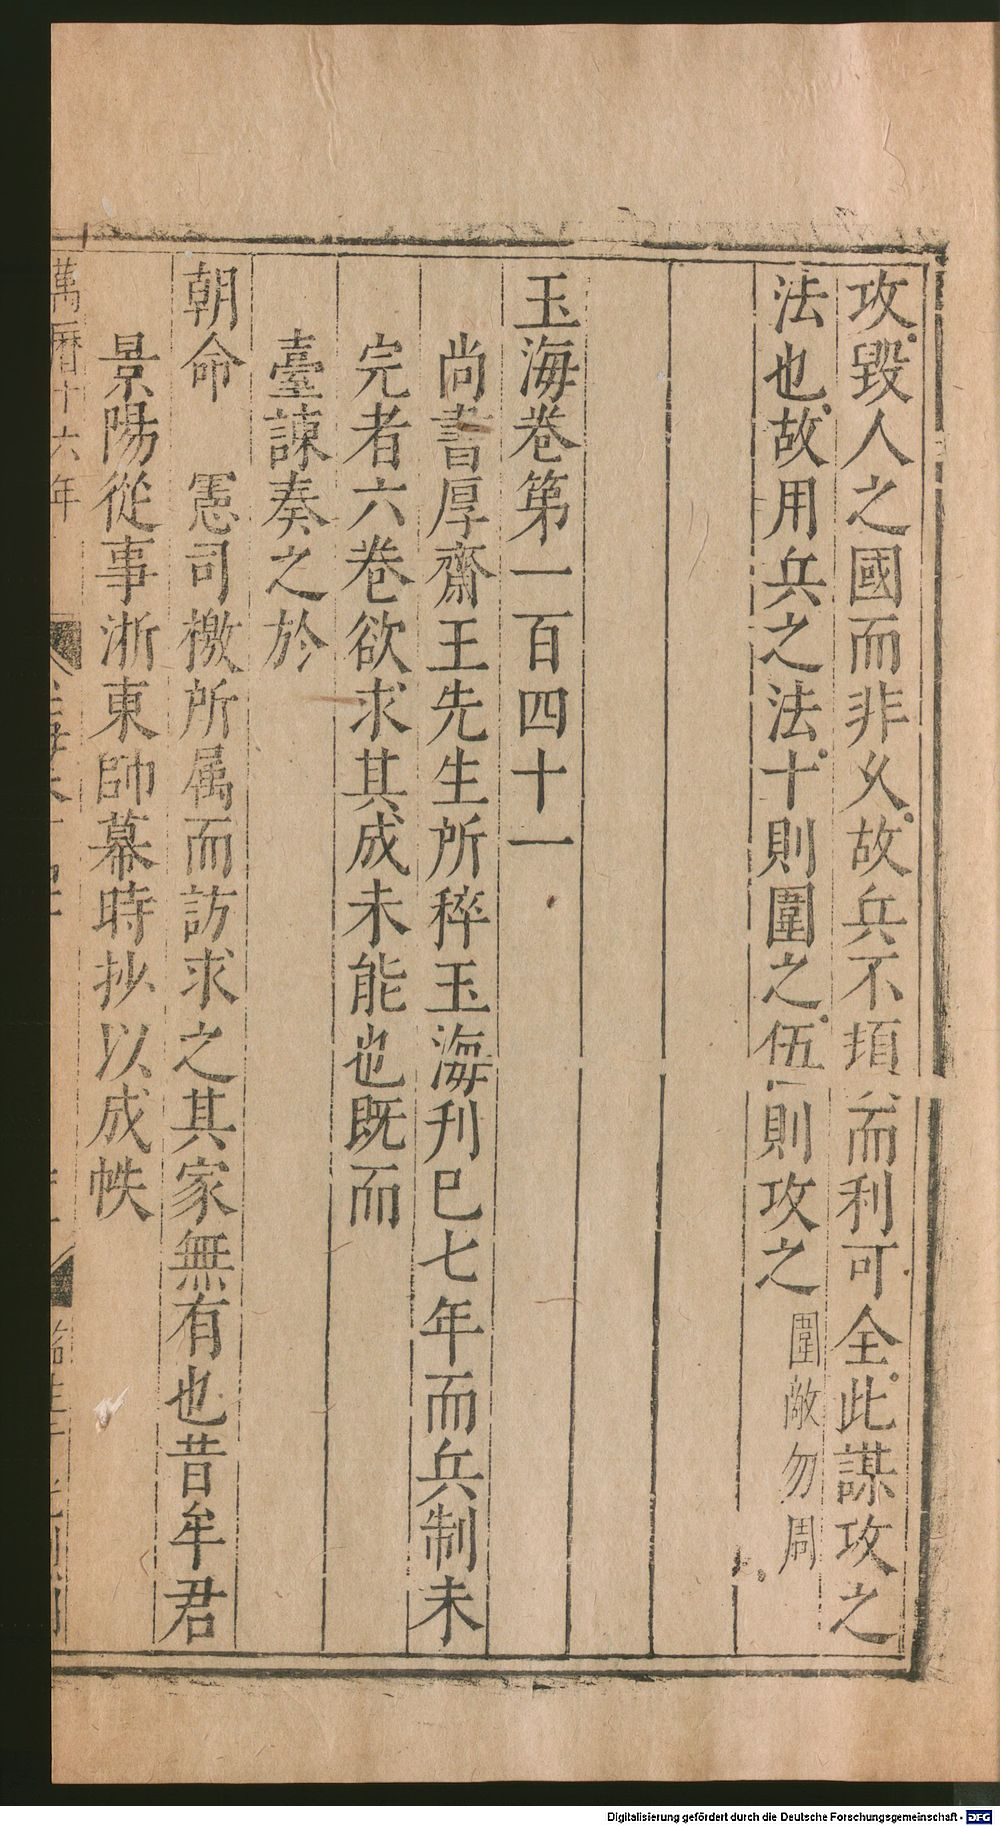 攻毀人之國而非乆故兵不頓而利可全此謀攻之
法也故用兵之法十則圍之伍則攻之圍敵勿周
玉海卷第一百四十一
尚書厚齋王先生所稡玉海刋已七年而兵制未
完者六巻欲求其成未能也既而
臺諫奏之於
朝命 憲司檄所属而訪求之其家無有也昔牟君
景陽從事浙東帥幕時抄以成帙
萬曆十六年
Digitalisierung gefördert durch die Deutsche Forschungsgemeinschaft - DFG